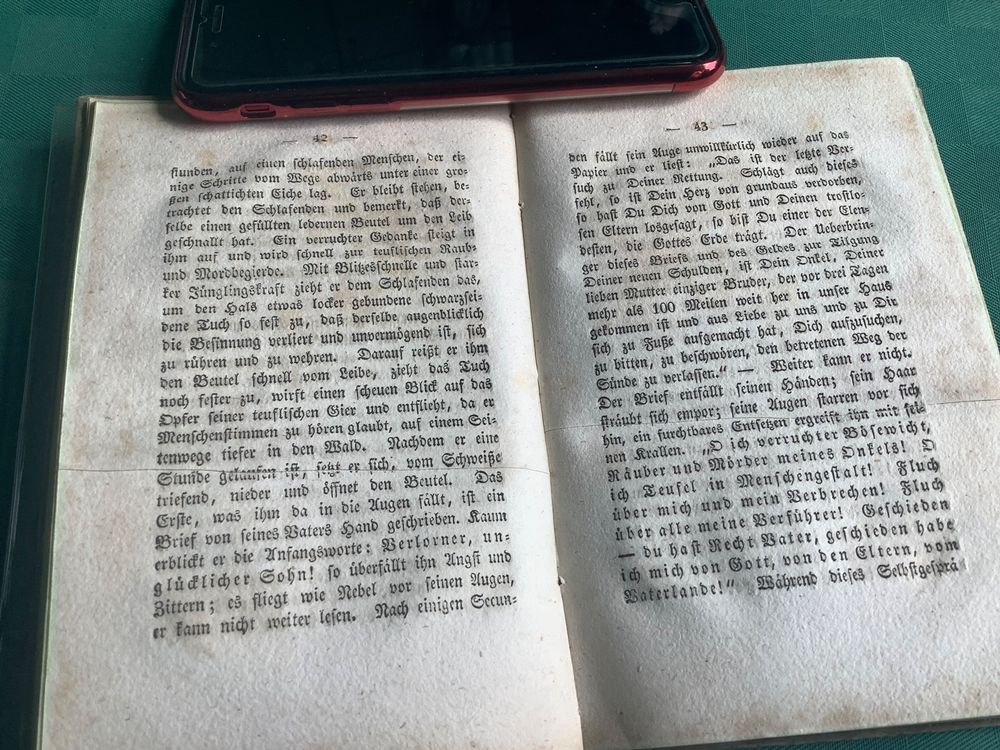 — 42 —
ſtunden, auf einen ſchlafenden Menſchen, der ei-
nige Schritte vom Wege abwärts unter einer gro-
ßen ſchattichten Eiche lag. Er bleibt ſtehen, be-
trachtet den Schlafenden und bemerkt, daß der-
ſelbe einen gefüllten ledernen Beutel um den Leib
geſchnallt hat. Ein verruchter Gedanke ſteigt in
ihm auf und wird ſchnell zur teufliſchen Raub-
und Mordbegierde. Mit Blitzesſchnelle und ſtar-
ker Jünglingskraft zieht er dem Schlafenden das,
um den Hals etwas locker gebundene ſchwarzſei-
dene Tuch ſo feſt zu, daß derſelbe augenblicklich
die Beſinnung verliert und unvermögend iſt, ſich
zu rühren und zu wehren. Darauf reißt er ihm
den Beutel ſchnell vom Leibe, zieht das Tuch
noch feſter zu, wirft einen ſcheuen Blick auf das
Opfer ſeiner teufliſchen Gier und entflieht, da er
Menſchenſtimmen zu hören glaubt, auf einem Sei-
tenwege tiefer in den Wald. Nachdem er eine
Stunde gelaufen iſt, ſetzt er ſich, vom Schweiße
triefend, nieder und öffnet den Beutel. Das
Erſte, was ihm da in die Augen fällt, iſt ein
Brief von ſeines Vaters Hand geſchrieben. Kaum
erblickt er die Anfangsworte: Verlorner, un-
glücklicher Sohn! ſo überfällt ihn Angſt und
Zittern; es fliegt wie Nebel vor ſeinen Augen,
er kann nicht weiter leſen. Nach einigen Secun-
— 43 —
den fällt ſein Auge unwillkürlich wieder auf das
Papier und er lieſt: „Das iſt der letzte Ver-
ſuch zu Deiner Rettung. Schlägt auch dieſes
fehl, ſo iſt Dein Herz von grundaus verdorben,
ſo haſt Du Dich von Gott und Deinen troſtlo-
ſen Eltern losgeſagt, ſo biſt Du einer der Elen-
deſten, die Gottes Erde trägt. Der Ueberbrin-
ger dieſes Briefs und des Geldes zur Tilgung
Deiner neuen Schulden, iſt Dein Onkel, Deiner
lieben Mutter einziger Bruder, der vor drei Tagen
mehr als 100 Meilen weit her in unſer Haus
gekommen iſt und aus Liebe zu uns und zu Dir
ſich zu Fuße aufgemacht hat, Dich aufzuſuchen,
zu bitten, zu beſchwören, den betretenen Weg der
Sünde zu verlaſſen.“ — Weiter kann er nicht.
Der Brief entfällt ſeinen Händen; ſein Haar
ſträubt ſich empor; ſeine Augen ſtarren vor ſich
hin, ein furchtbares Entſetzen ergreift ihn mit ſei-
nen Krallen. „O ich verruchter Böſewicht,
Räuber und Mörder meines Onkels! O
ich Teufel in Menſchengeſtalt! Fluch
über mich und mein Verbrechen! Fluch
über alle meine Verführer! Geſchieden
— du haſt Recht Vater, geſchieden habe
ich mich von Gott, von den Eltern, vom
Vaterlande!“ Während dieſes Selbſtgeſprä